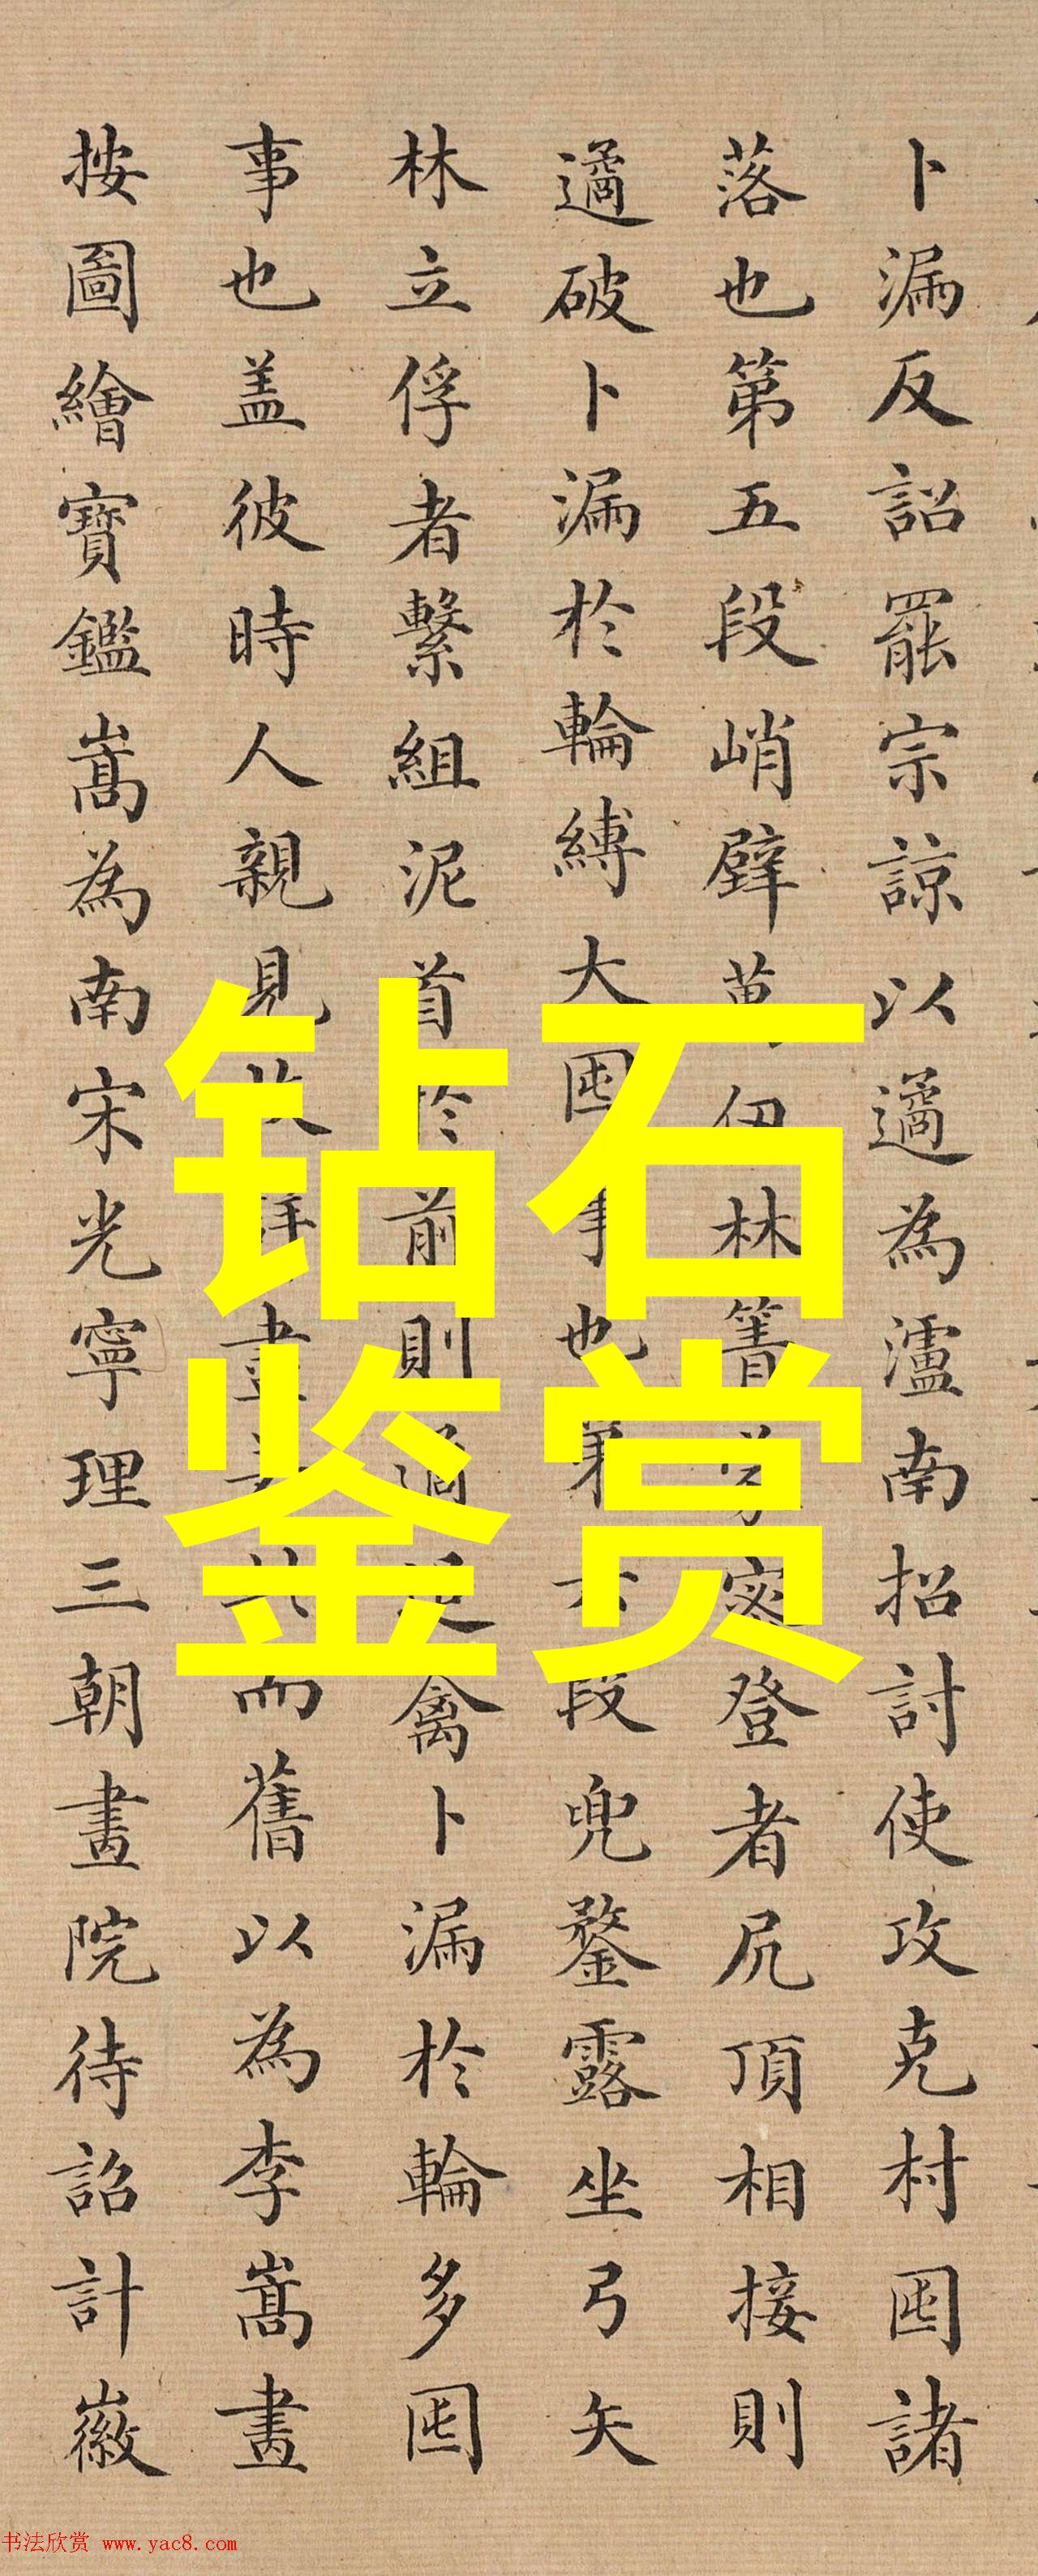 卜漏反詔罷宗諒以遹為瀘南招討使攻克村囤諸
落也第五段峭壁萬仞林箐蒙密登者尻頂相接則
遹破卜漏於輪縛大囤事也第六段兜鍪露坐弓矢
林立俘者繫組泥首於前則遹追禽卜漏於輪多囤
事也盖彼時人親見其事畫以而舊以為李嵩畫
按圖繪寶鑑嵩為南宋光寧理三朝畫院待詔計徽
钻石
鉴赏
书法欣赏 www.yac8.com